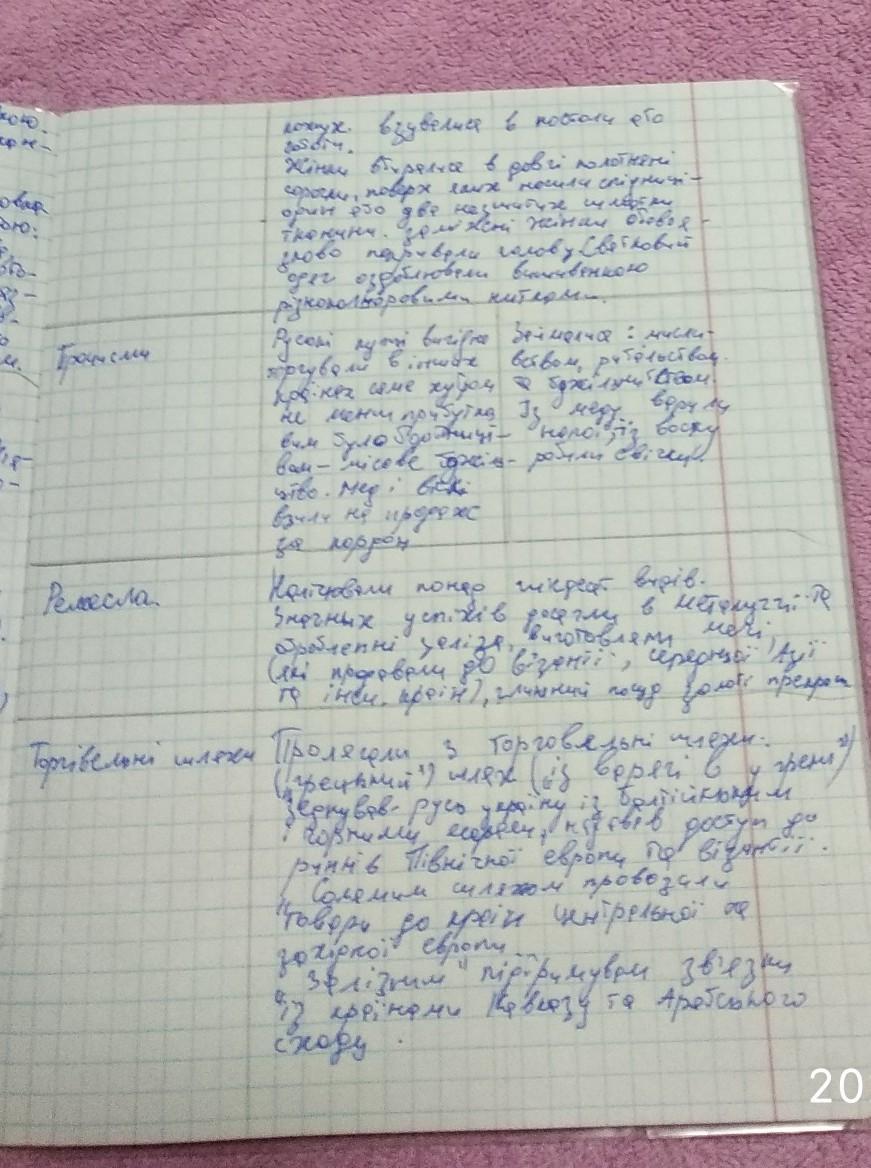 кожух. взувалися в постоли або
чоботи.
Жінки вбиралися в довгі полотняні
сорочки, поверх яких носили спідниці-
один або два незшитих шматки
тканини. заміжні жінки обовя-
зково покривали голову. Святковий
одяг оздоблювали вишивкою
різнокольоровими нитками.
Промисли
Руські купці вигідно
торгували в інших
країнах саме хутром
не менш прибутко
вим було бортниц-
вом - лісове бджіль-
ицтво. Мед і віск
везли на продаж
за кордон
Займалися: мисли-
вством, рибальством
та бджільництвом.
Із меду варили
напої, із воску
робили свічки.
Ремесла.
Налічували понад шістдесят видів.
Значных успіхів досягли в металургії та
обробленні заліза, виготовляли мечі,
(які продавали до візантії, середньої Азії
та інш. країн), глиняний посуд золоті прикраси
Торгівельні шляхи
Пролягали 3 торговельні шляхи.
"грецький") шлях (із варягі в у греки")
Зєднував русь україну із балтійським
і чорними морем, надавав доступ до
ринків Північної європи та візантії.
"Соляним шляхом провозили
товари до країн центральної та
західної європи
"Залізним" підтримували зв'язки
із країнами Кавказу та Арабського
сходу.
20